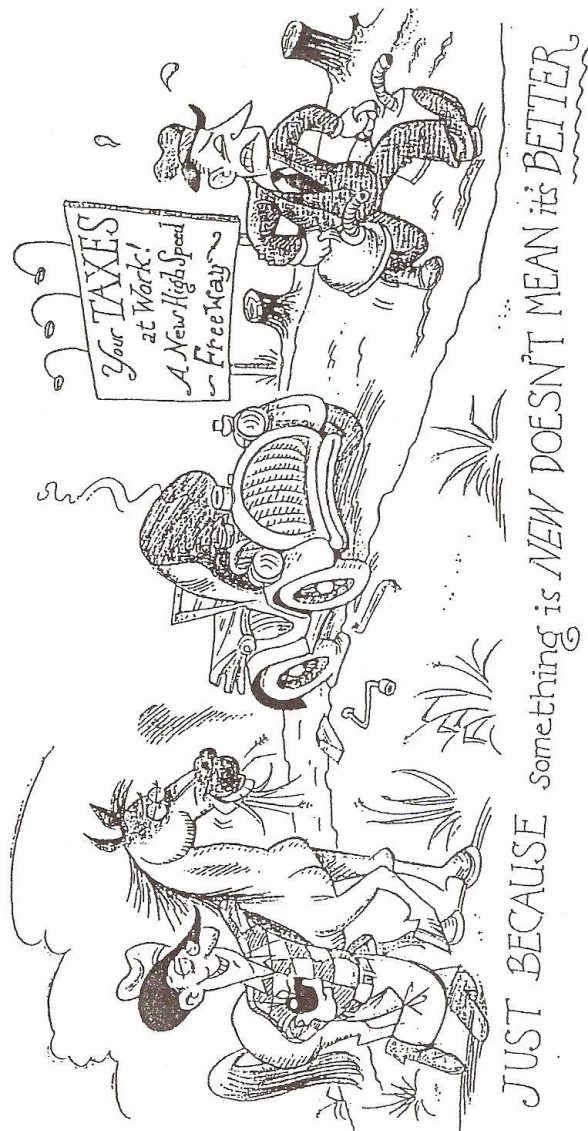 Your TAXES
at Work!
A New High Speed
~ FreeWay ~
JUST BECAUSE something is NEW DOESN'T MEAN it's BETTER